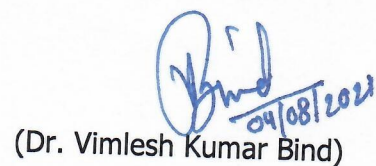 Bind
04/08/2021
(Dr. Vimlesh Kumar Bind)